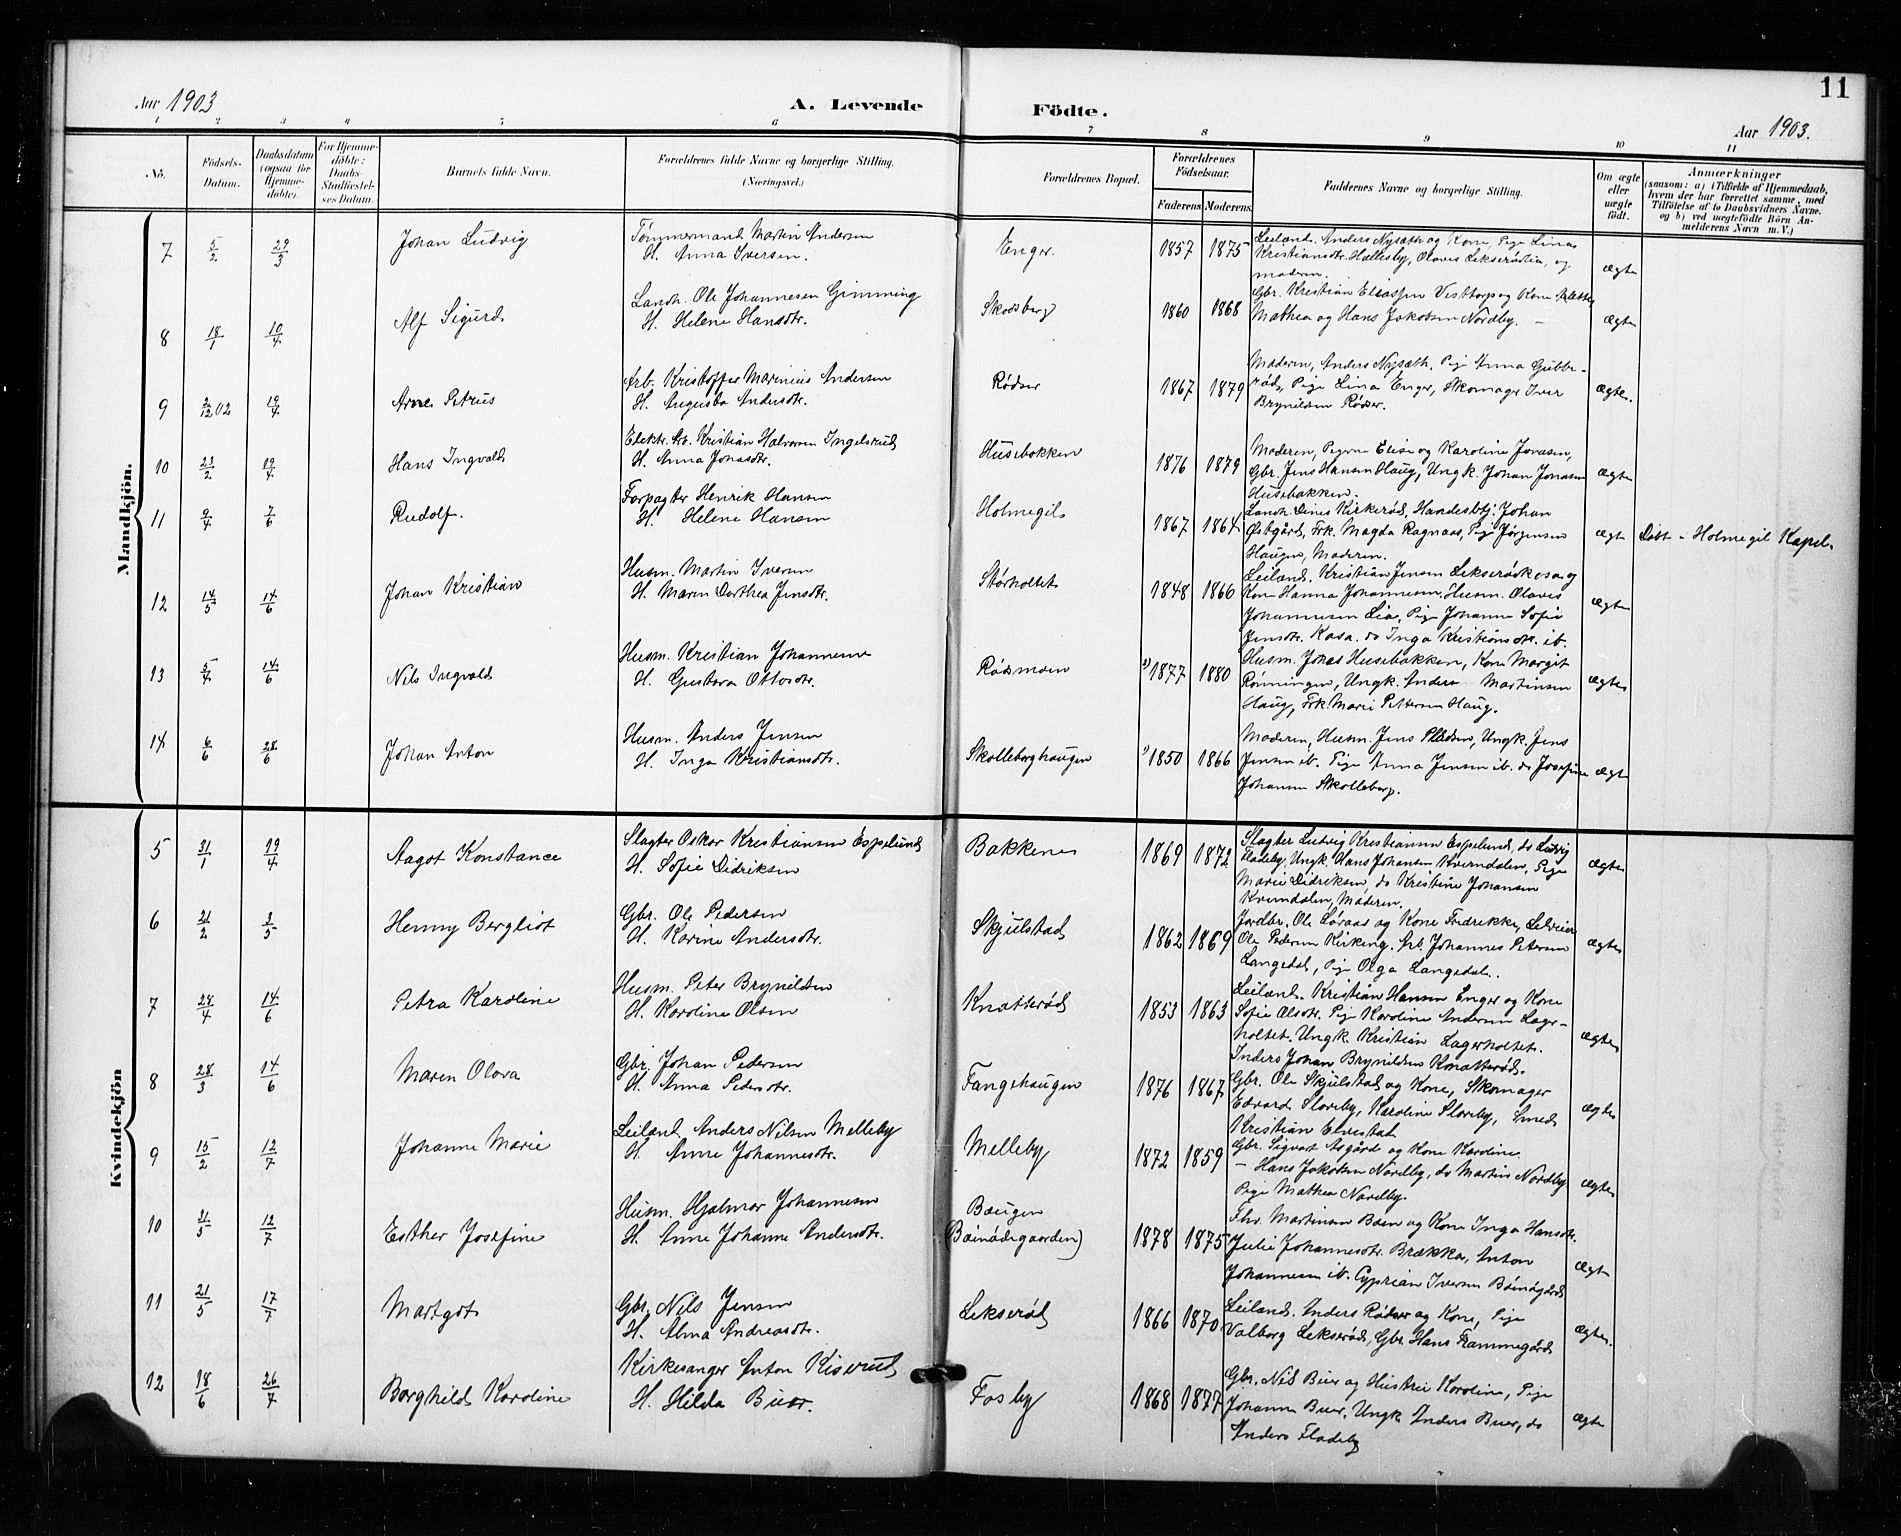 11
Aar 1903
A. Levende
Födte.
Aar 1903.
1 2 3 4 5 6 7 8 9 10 11
No.
Födsels-
Datum.
Daabsdatum
(ogsaa för
Hjemme-
döbte).
For Hjemme-
döbte:
Daabs-
Stadfæstel-
ses Datum.
Barnets fulde Navn.
Forældrenes fulde Navne og borgerlige Stilling.
(Næringsvei.)
Forældrenes Bopæl.
Forældrenes
Födselsaar.
Faderens Moderens
Faddernes Navne og borgerlige Stilling.
Om ægte
eller
uægte
födt.
Anmærkninger
(saasom: a) i Tilfælde af Hjemmedaab,
hvem der har forrettet samme, med
Tilföielse af to Daabsvidners Navne,
og b) ved uægtefödte Börn An-
melderens Navn m. V.)
Mandkjön.
7 5/2 29/3 Johan Ludvig
Tømmermand Martin Andersen
H. Anna Iversen.
Enger. 1857 1875
Leiland. Anders Nysæth og Kone, Pige Lina
Kristiansdtr. Hællesby, Olaves Lekserødlia, og
moderen.
ægte
8 18/1 10/4 Alf Sigurd
Landh. Ole Johannesen Gimming
H. Helene Hansdtr.
Skodsberg 1860 1868
Gbr. Kristian Eliassen Vesttorp og Kone
Mathea og Hans Jakobsen Nordby. –
ægte
9 2/12 02 19/4 Arne Petrus
Arb. Kristoffer Marinius Andersen
H. Augusta Andersdtr.
Rødser 1867 1879
Moderen, Anders Nysæth, Pige Anna Gubbe-
rød, Pige Lina Enger, Skomager Iver
Brynildsen Rødser.
ægte.
10 23/2 19/4 Hans Ingvald
Elektr. Arb. Kristian Halvorsen Ingelsrud
H. Anna Jonasdtr.
Husebakken 1876 1879
Moderen, Pigerne Elise og Karoline Jonasen,
Gbr. Jens Hansen Haug, Ungk. Johan Jonasen
Husebakken.
ægte
11 9/4 7/6 Rudolf.
Forpagter Henrik Hansen
H. Helene Hansen
Holmegil 1867 1864
Landh. Dines Kirkerød, Handelsbtj. Johan
Østgård, Frk. Magda Ragnaas, Pige Jørgensen
Haugen, Moderen.
ægte Døbt i Holmegil Kapel.
12 14/5 14/6 Johan Kristian
Husm. Martin Iversen
H. Maren Dorthea Jensdtr.
Størholtet 1848 1866
Leiland. Kristian Jensen Lekserødkosa og
Kone Hanna Johannesen. Husm. Olaves
Johannesen Lia, Pige Johanne Sofie
Jensdtr. Kasa. do Inga Kristiansdtr. ib.
ægte
13 5/4 14/6 Nils Ingvald
Husm. Kristian Johannesen
H. Gustava Ottosdtr.
Rødsmoen 1877 1880
Husm. Johas Husebakken, Kone Margit
Rønningen, Ungk. Anders Martinsen
Haug, Frk. Marie Pettersen Haug.
ægte
14 6/6 28/6 Johan Anton
Husm. Anders Jensen
H. Inga Kristiansdtr.
Skolleborghaugen 1850 1866
Moderen, Husm. Jens Pladsen, Ungk. Jens
Jensen ib. Pige Anna Jensen ib. do Josefine
Johansen Skolleborg.
ægte
Kvindekjön
5 31/1 19/4 Aagot Konstance
Slagter Oskar Kristiansen Espelund
H. Sofie Didriksen
Bakkene 1869 1872
Slagter Ludvig Kristiansen Espelund, do Ludvig
Fladeby, Ungk. Hans Johansen Kverndalen, Pige
Marie Didriksen, do Kristine Johansen
Kverndalen, Moderen.
ægte
6 21/2 3/5 Henny Bergliot
Gbr. Ole Pedersen
H. Karine Andersdtr.
Skjulstad 1862 1869
Jordbr. Ole Løraas og Kone Fredrikke, Selveier
Ole Pedersen Kirkeng. Arb. Johannes Petersen
Langedal, Pige Olga Langedal.
ægte
7 24/4 14/6 Petra Karoline
Husm. Peter Brynildsen
H. Karoline Olsen
Knatterød 1853 1863
Leiland. Kristian Hansen Enger og Kone
Sofie Olsdtr. Pige Karoline Andersen Lager-
holtet. Ungk. Kristian Lagerholtet.
Anders Johan Brynildsen Knatterød.
ægte
8 28/3 14/6 Maren Olava
Gbr. Johan Pedersen
H. Anna Pedersdtr.
Fangehaugen 1876 1867
Gbr. Ole Skjulstad og Kone, Skomager
Edvard Sloreby, Karoline Sloreby, Smed
Kristian Elvestad
ægte
9 15/2 12/7 Johanne Marie
Leiland Anders Nilsen Melleby
H. Anne Johannesdtr.
Melleby 1872 1859
Gbr. Sigvart Asgård og Kone Karoline.
– Hans Jakobsen Nordby, do Martin Nordby
Pige Mathea Nordby.
ægte
10 31/5 12/7 Esther Josefine
Husm. Hjalmar Johannesen
H. Anne Johanne Andersdtr.
Baugen
(Bøinødegaarden) 1878 1875
Thv. Martinsen Boen og Kone Inga Hansdtr.
Julie Johannesdtr. Brækka, Anton
Johannesen ib. Cyprian Iversen Bøinøgård
ægte
11 21/5 17/7 Martgot
Gbr. Nils Jensen
H. Alma Andreasdtr.
Lekserød 1866 1870
Leiland. Anders Rødser og Kone, Pige
Valborg Lekserød, Gbr. Hans Frammegård
ægte.
12 18/6 26/7 Borghild Karoline
Kirkesanger Anton Kiserud
H. Hilda Buer.
Fosby 1868 1877
Gbr. Nils Buer og Hustru Karoline, Pige
Johanne Buer, Ungk Anders Buer, do
Anders Fladeby
ægte